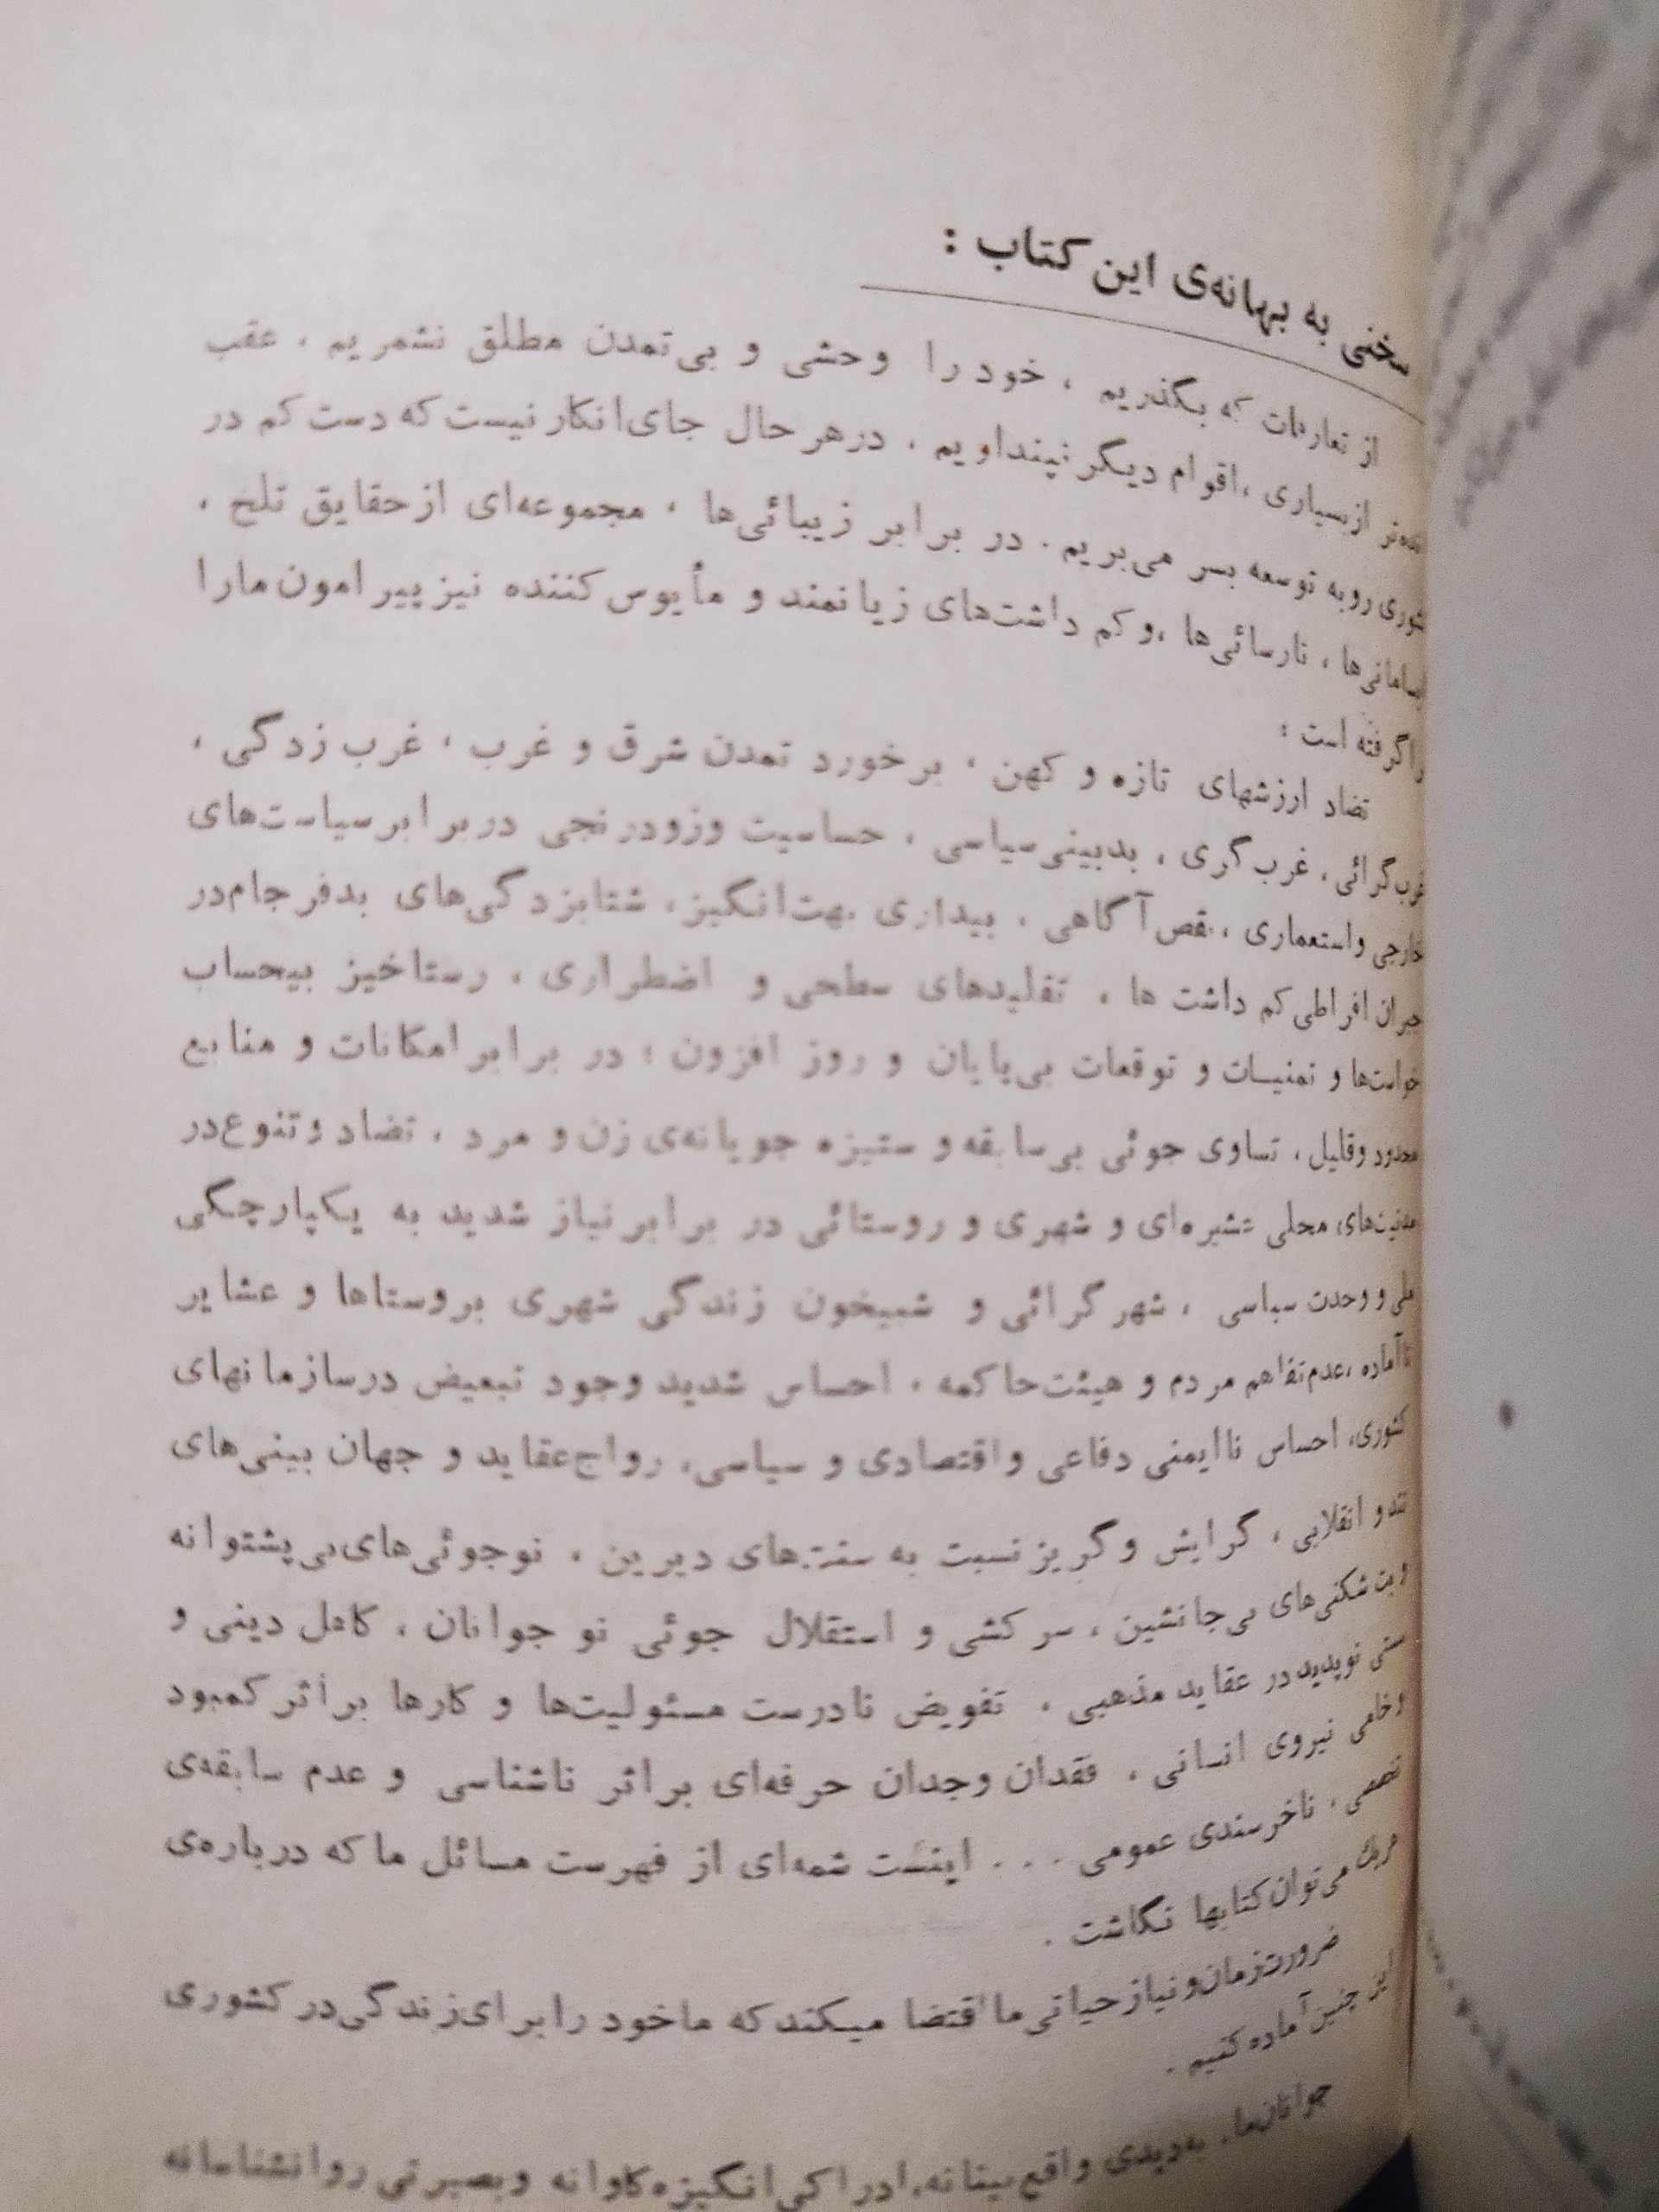 سخنی به بهانه‌ی این کتاب :
از تعارفات که بگذریم ، خود را وحشی و بی‌تمدن مطلق نشمریم ، عقب
از بسیاری ، اقوام دیگر نپنداریم ، درهر حال جای انکار نیست که دست کم در
روبه توسعه بسر می‌بریم . در برابر زیبائی‌ها ، مجموعه‌ای از حقایق تلخ ،
نارسائی‌ها ، و کم داشت‌های زیانمند و مأیوس کننده نیز پیرامون ما را
گرفته است :
تضاد ارزشهای تازه و کهن ، برخورد تمدن شرق و غرب ، غرب زدگی ،
غرب‌گرائی ، غرب گری ، بدبینی سیاسی ، حساسیت وزودرنجی در برابر سیاست‌های
خارجی و استعماری ، نقص آگاهی ، بیداری بهت‌انگیز ، شتابزدگی‌های بدفرجام در
جبران افراطی کم داشت ها ، تقلیدهای سطحی و اضطراری ، رستاخیز بیحساب
خواست‌ها و تمنیات و توقعات بی‌پایان و روز افزون ؛ در برابر امکانات و منابع
محدود وقلیل ، تساوی جوئی بی‌سابقه و ستیزه جویانه‌ی زن و مرد ، تضاد و تنوع در
مدنیت‌های محلی عشیره‌ای و شهری و روستائی در برابر نیاز شدید به یکپارچگی
ملی و وحدت سیاسی ، شهر گرائی و شبیخون زندگی شهری بروستاها و عشایر
ناآماده ، عدم تفاهم مردم و هیئت حاکمه ، احساس شدید وجود تبعیض درسازمانهای
کشوری ، احساس ناایمنی دفاعی و اقتصادی و سیاسی ، رواج عقاید و جهان بینی‌های
تند و انقلابی ، گرایش و گریز نسبت به سنت‌های دیرین ، نوجوئی‌های بی‌پشتوانه
و بت شکنی‌های بی‌جانشین ، سرکشی و استقلال جوئی نو جوانان ، کاهل دینی و
سستی نوپدید در عقاید مذهبی ، تفویض نادرست مسئولیت‌ها و کارها براثر کمبود
و خامی نیروی انسانی ، فقدان وجدان حرفه‌ای براثر ناشناسی و عدم سابقه‌ی
تخصصی ، ناخرسندی عمومی . . . اینست شمه‌ای از فهرست مسائل ما که درباره‌ی
هریک می‌توان کتابها نگاشت .
ضرورت زمان و نیاز حیاتی ما اقتضا میکند که ما خود را برای زندگی در کشوری
این چنین آماده کنیم .
جوانان ما ، به‌دیدی واقع بینانه ، ادراکی انگیزه کاوانه و بصیرتی روانشناسانه